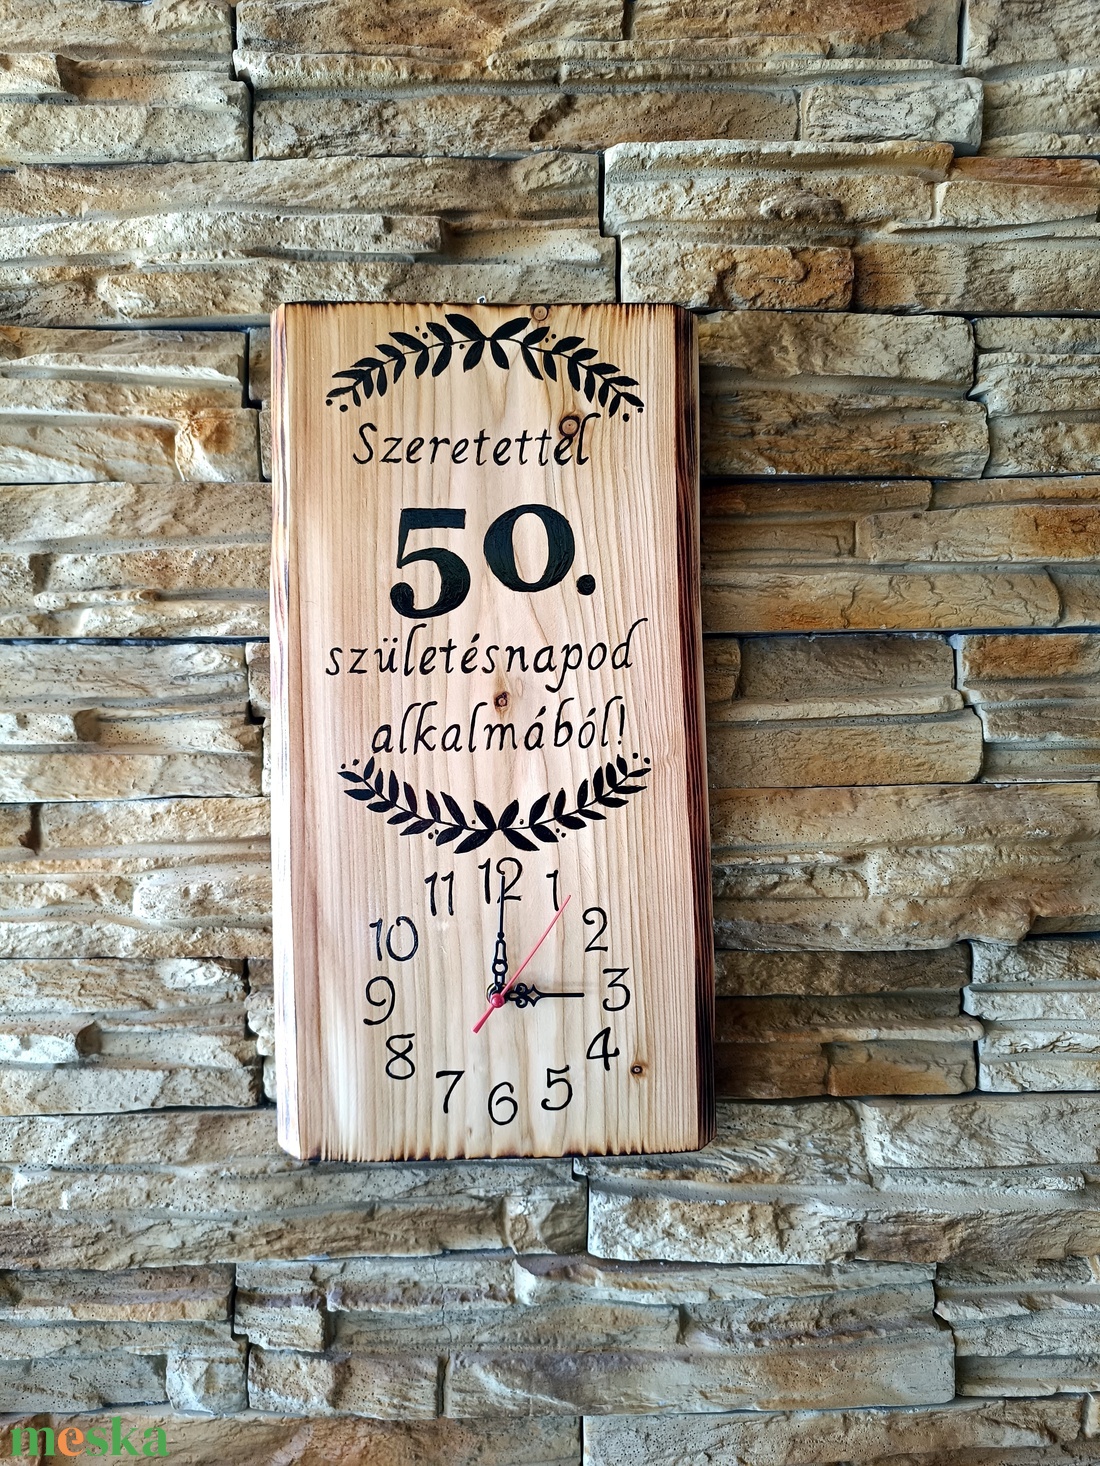 Szeretettel
50.
születésnapod
alkalmából!
12
11 1
10 2
9 3
8 4
7 5
6
meska